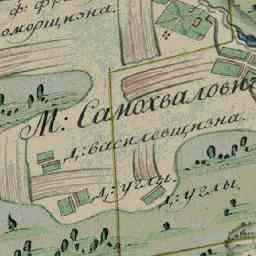 ф: Фр
оморщизна.
М: Самохвалови
д: василевщизна.
д: углы.
д: углы.